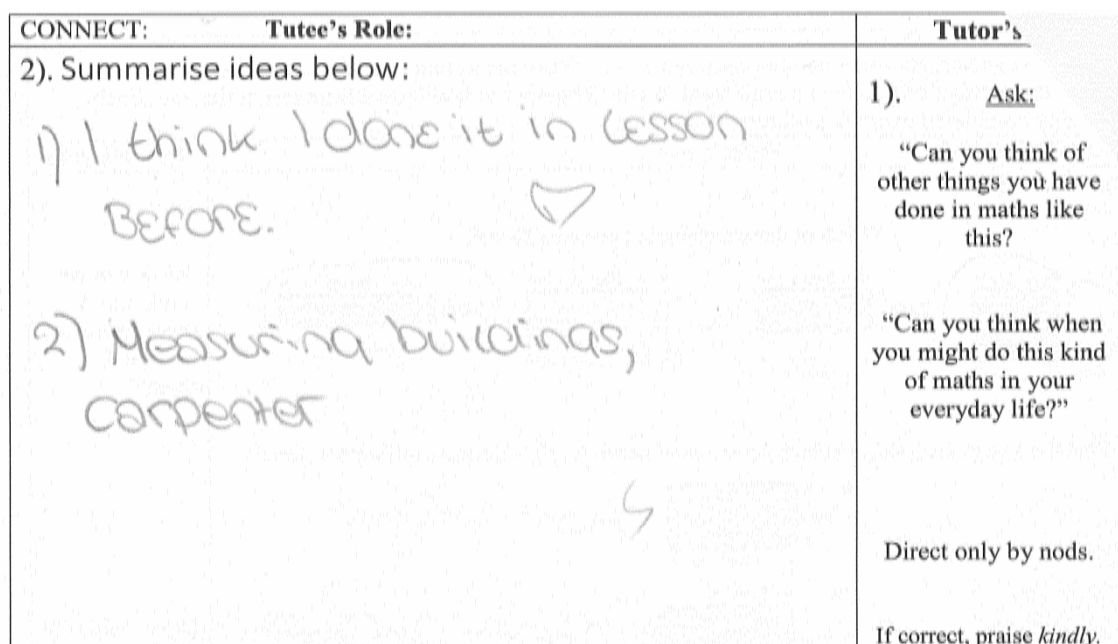 CONNECT: Tutee's Role:
2). Summarise ideas below:
1) I think I done it in lesson
Before.
2) Measuring buildings,
carpenter
Tutor's
1). Ask:
"Can you think of
other things you have
done in maths like
this?
"Can you think when
you might do this kind
of maths in your
everyday life?"
Direct only by nods.
If correct, praise kindly.